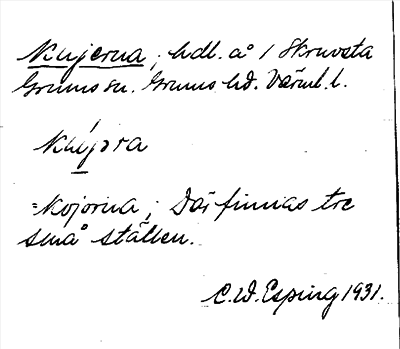 Kujerna; hdl. å 1 Skruvsta
Grums sn. Grums hd. Värml. l.
Kujɔra
=Kojorna; Där finnas tre
små ställen.
C.W. Esping 1931.